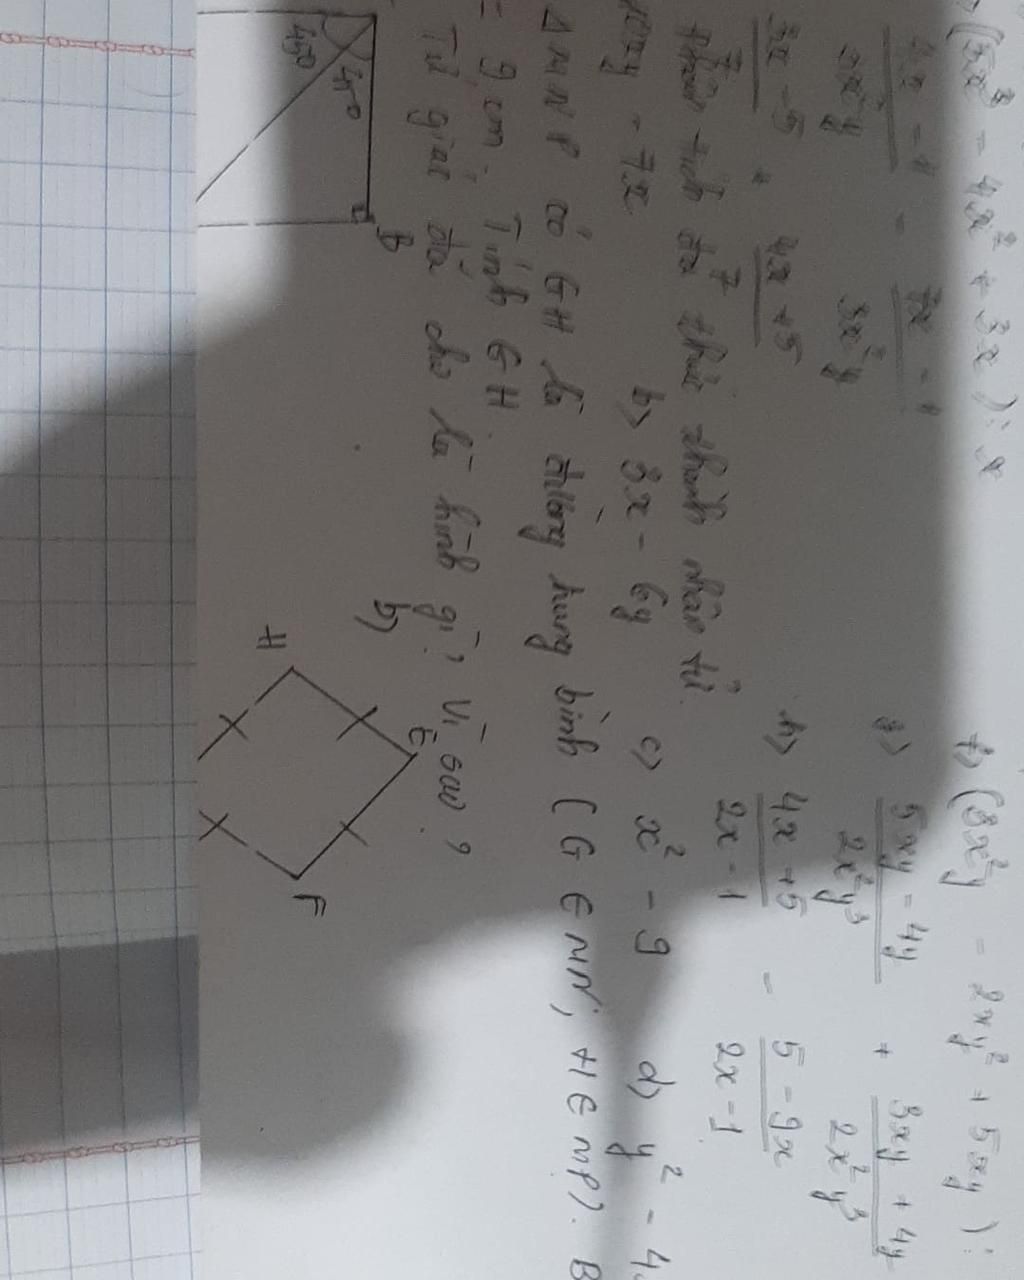 (5x³ - 4x² + 3x) : x f) (8x²y - 2xy² + 5xy) :
- 7x - 1 g) 5xy - 4y + 3xy + 4y
2x²y 3x²y 2x²y³ 2x²y³
3x - 5 + 4x + 5 h) 4x + 5 - 5 - 9x
2x - 1 2x - 1
Phân tích đa thức thành nhân tử
- 7x b) 3x - 6y c) x² - 9 d) y² - 4
Δ MNP có GH là đường trung bình (G ∈ MN; H ∈ MP). B
= 9 cm. Tính GH
Tứ giác đã cho là hình gì? Vì sao?
b)
45° 45° B
H E F